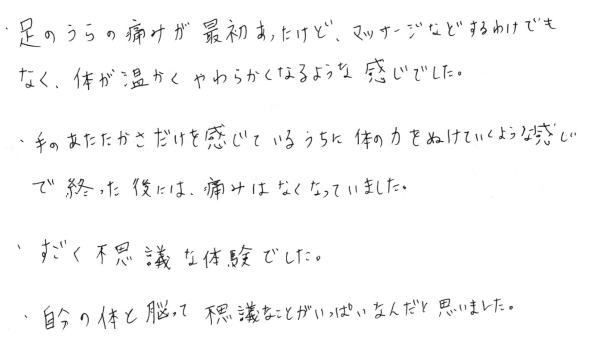 ・足のうらの痛みが最初あったけど、マッサージなどするわけでも
なく、体が温かくやわらかくなるような感じでした。
・手のあたたかさだけを感じているうちに体の力もぬけていくような感じ
で終った後には、痛みはなくなっていました。
・すごく不思議な体験でした。
・自分の体と脳って不思議なことがいっぱいなんだと思いました。